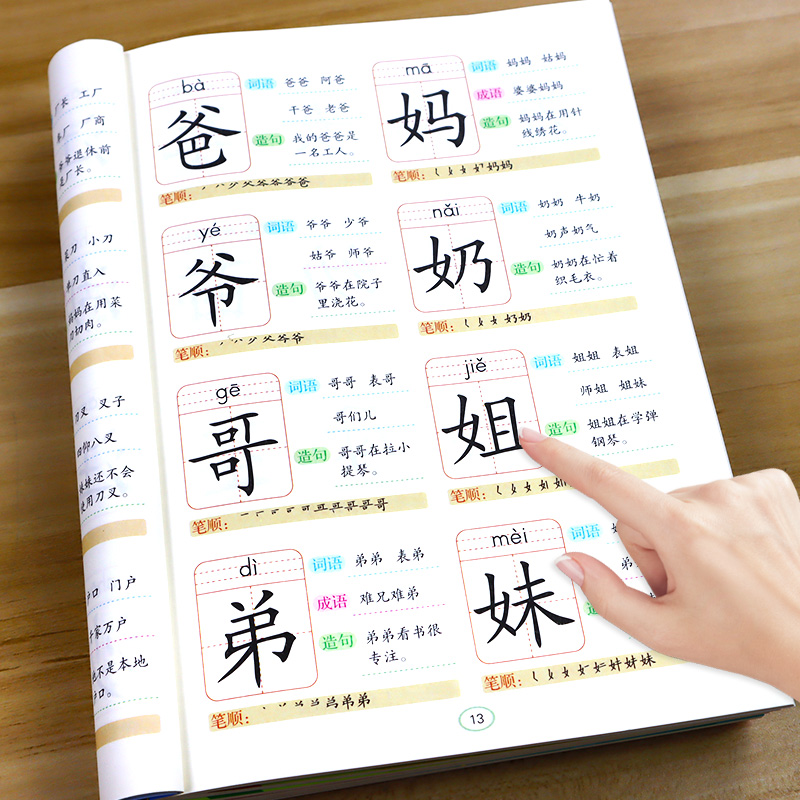 厂长 工厂
厂 厂商
爷爷退休前
是厂长。
菜刀 小刀
单刀直入
妈妈在用菜
刀切肉。
刀叉 叉子
四仰八叉
妹妹还不会
使用刀叉。
户口 门户
千家万户
他不是本地
户口。
bà
爸
词语 爸爸 阿爸
干爸 老爸
造句 我的爸爸是
一名工人。
笔顺:
mā
妈
词语 妈妈 姑妈
成语 婆婆妈妈
造句 妈妈在用针
线绣花。
笔顺:
yé
爷
词语 爷爷 少爷
姑爷 师爷
造句 爷爷在院子
里浇花。
笔顺:
nǎi
奶
词语 奶奶 牛奶
奶声奶气
造句 奶奶在忙着
织毛衣。
笔顺:
gē
哥
词语 哥哥 表哥
哥们儿
造句 哥哥在拉小
提琴。
笔顺:
jiě
姐
词语 姐姐 表姐
师姐 姐妹
造句 姐姐在学弹
钢琴。
笔顺:
dì
弟
词语 弟弟 表弟
成语 难兄难弟
造句 弟弟看书很
专注。
笔顺:
mèi
妹
词语
弟
造
笔顺:
13